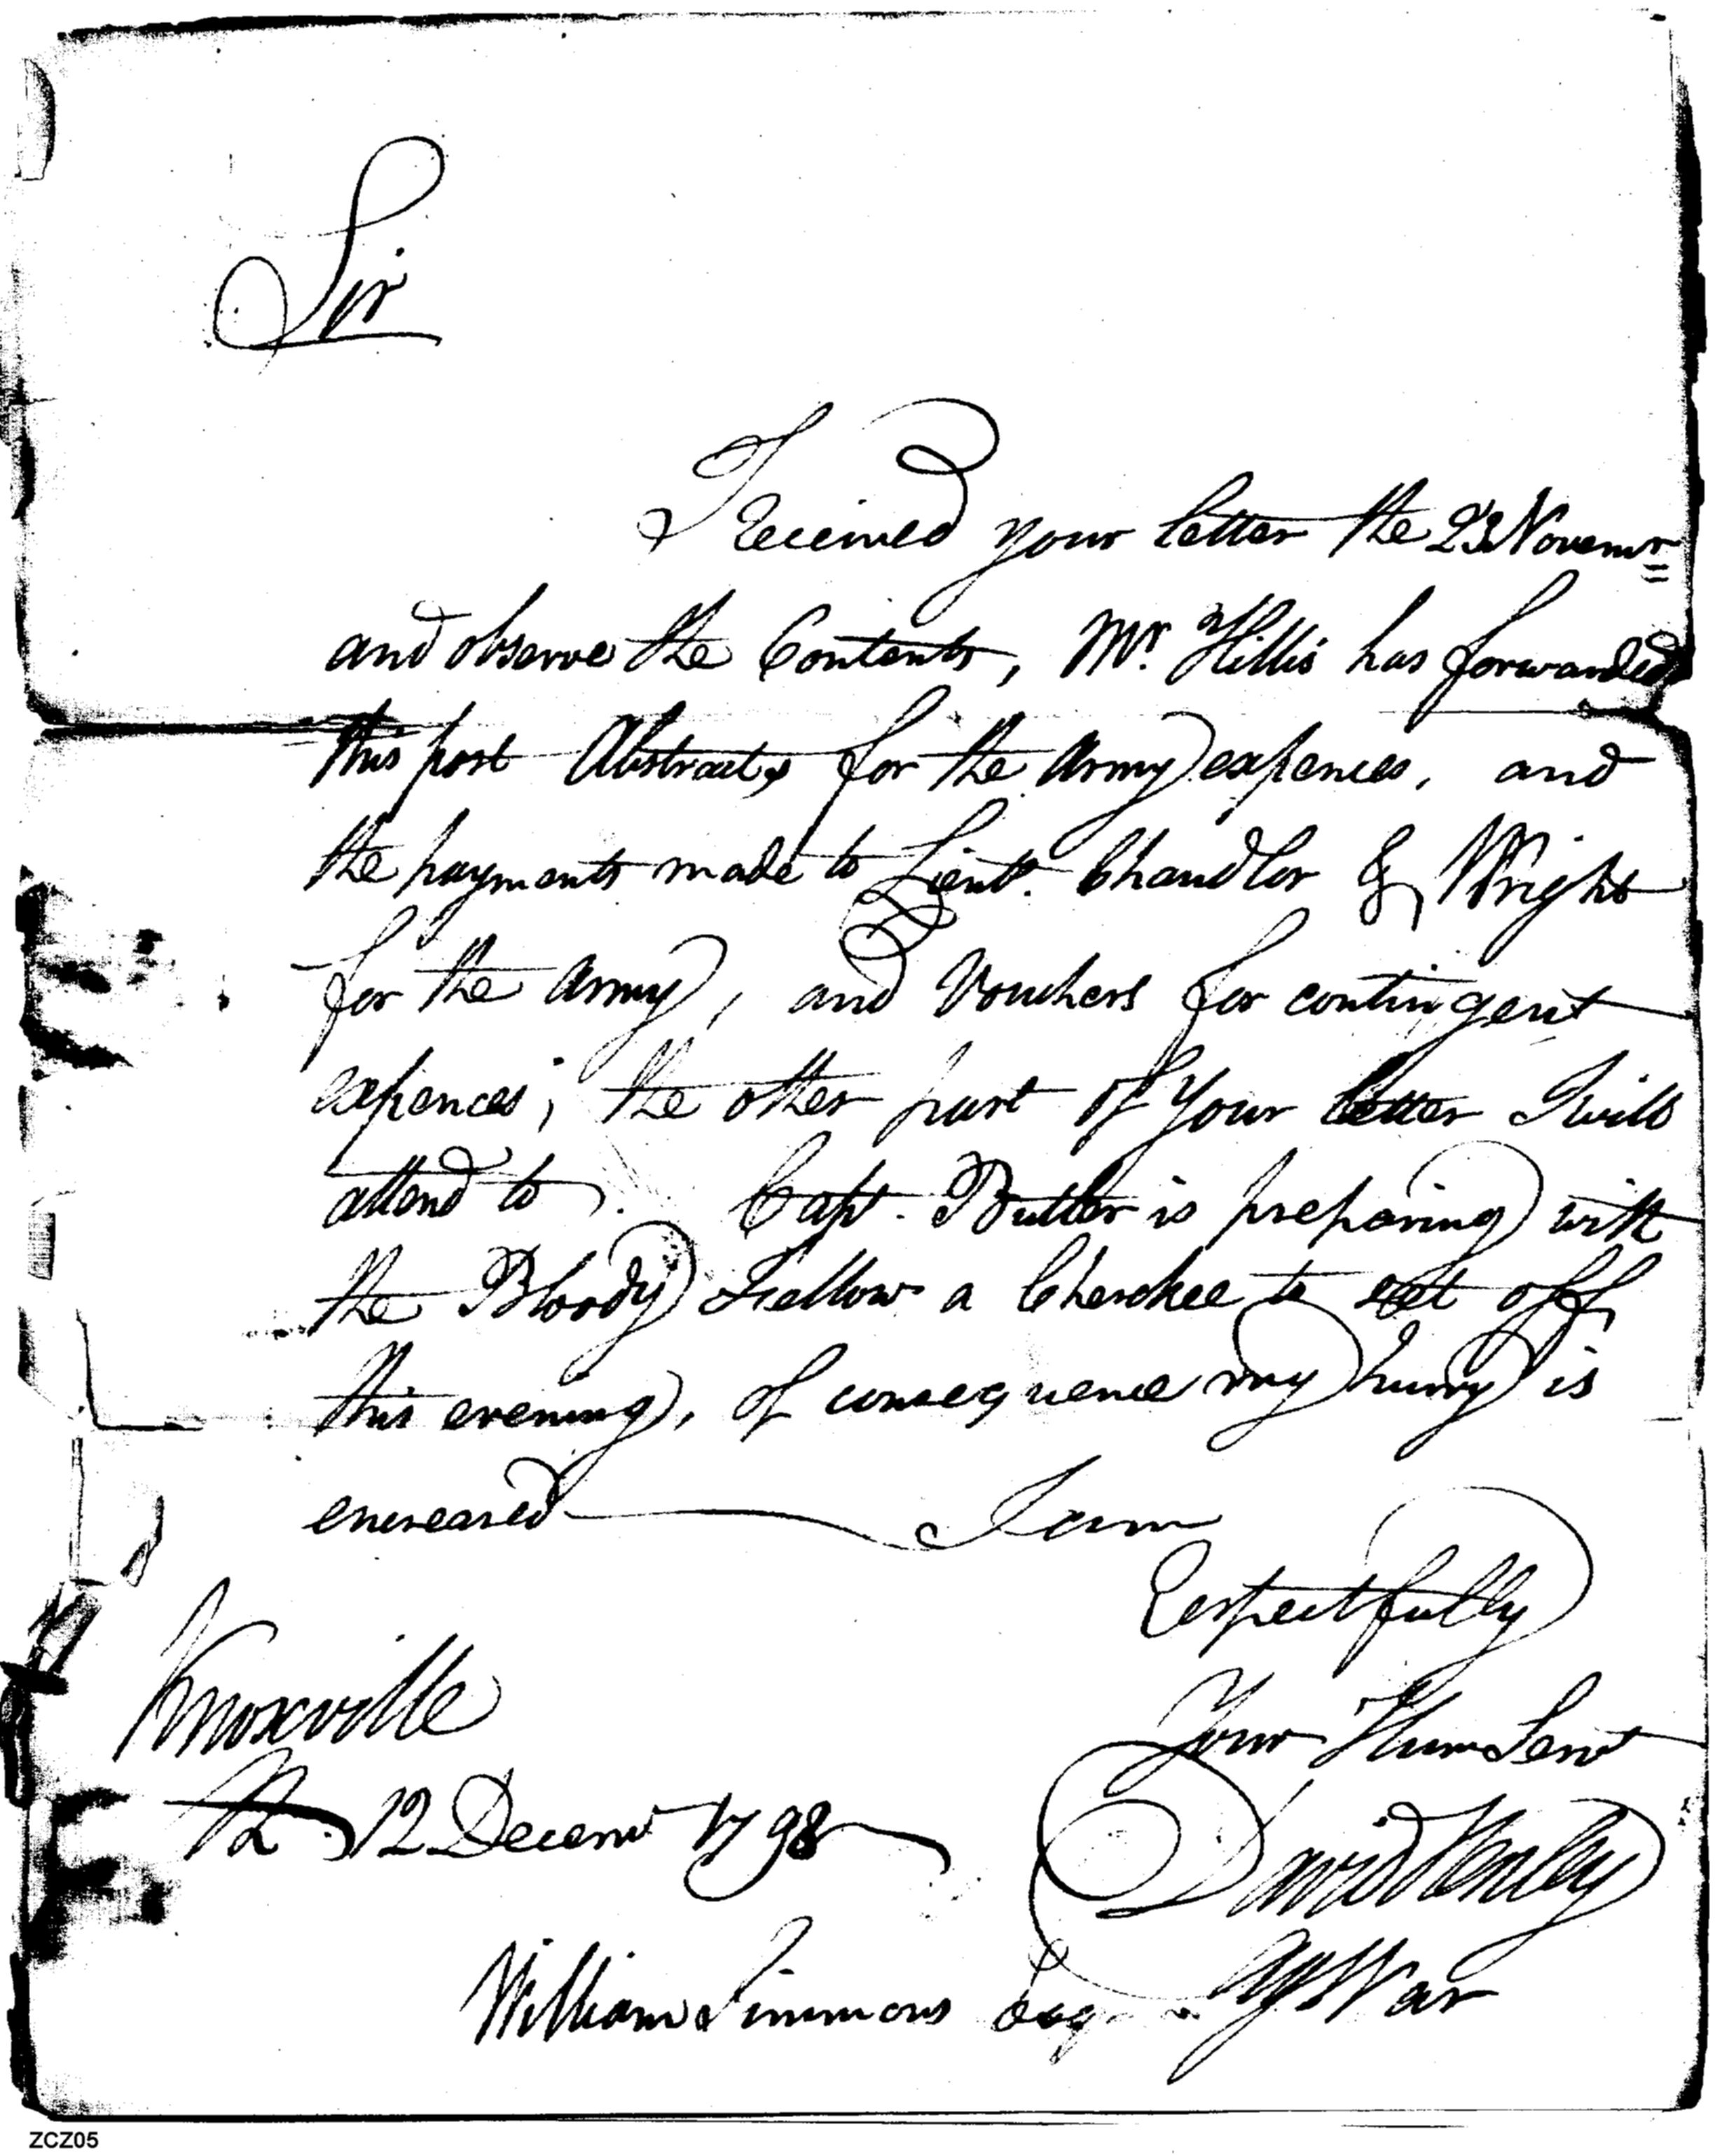 Sir
I Received your letter the 23 Novemr
and observe the Contents, Mr. Hillis has forwarded
this post Abstracts for the Army expences, and
the payments made to Lieut. Chandler & Wright
for the Army, and Vouchers for contingent
expences; the other part of your letter I will
attend to. Capt. Butler is preparing with
the Bloody Fellow a Cherokee to set off
this evening, of consequence my hurry is
encreased I am
Respectfully
Your Hum Servt
Knoxville
12 Decemr 1798
David Henley
Agt War
William Simmons Esqr
ZCZ05